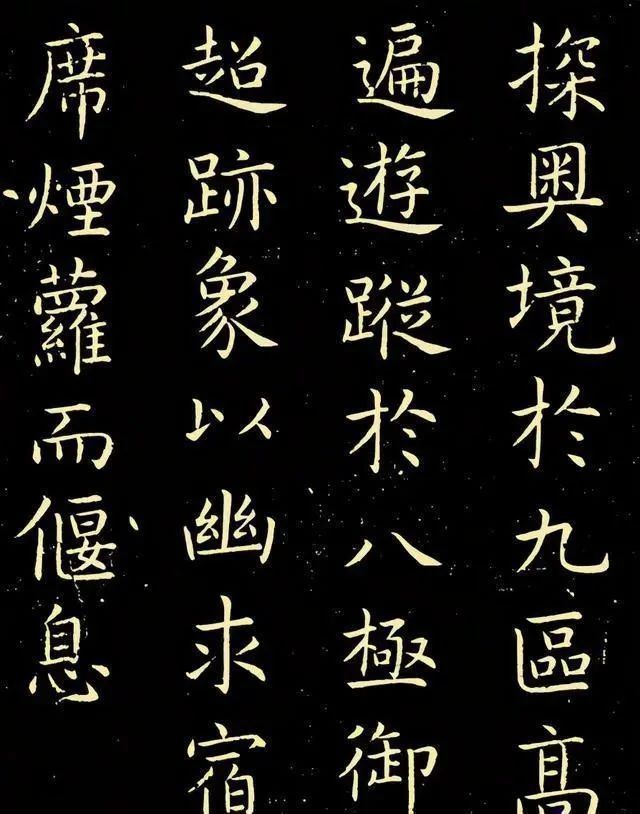 探奥境於九區高
遍遊蹤於八極御
超跡象以幽求宿
席煙蘿而偃息